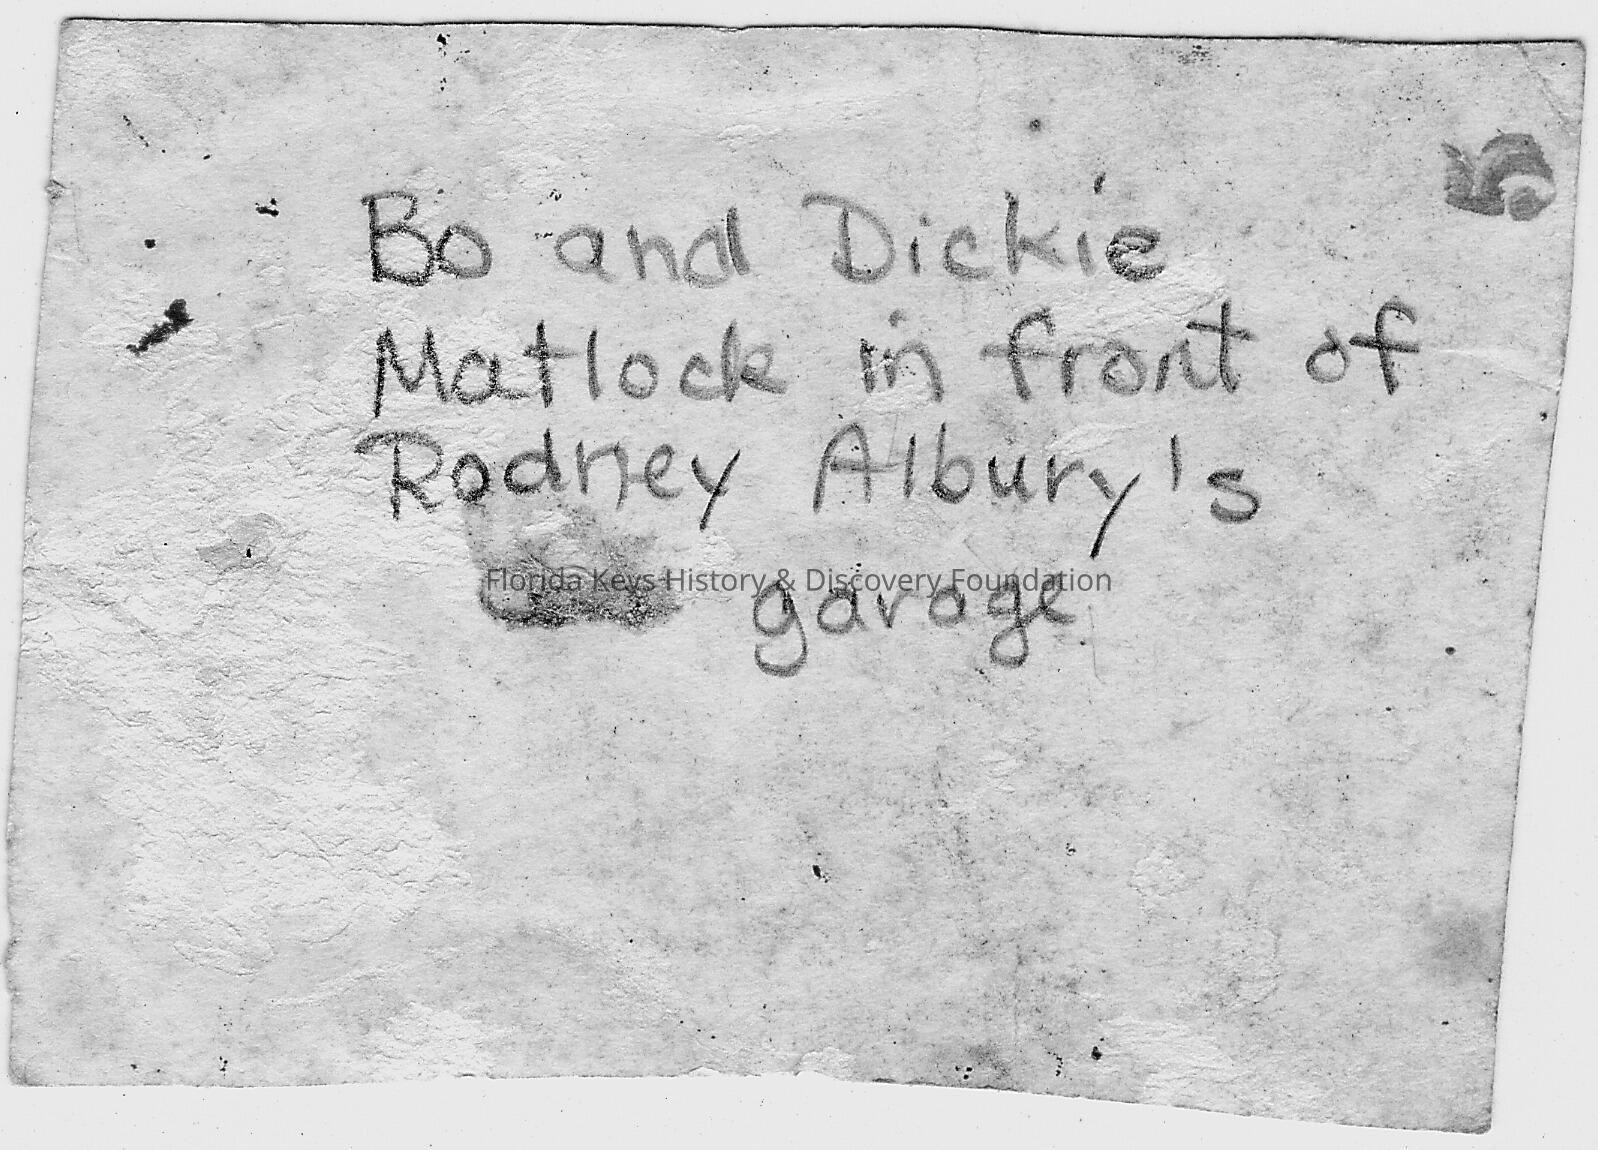 Bo and Dickie
Matlock in front of
Rodney Albury's
Florida Keys History & Discovery Foundation
garage